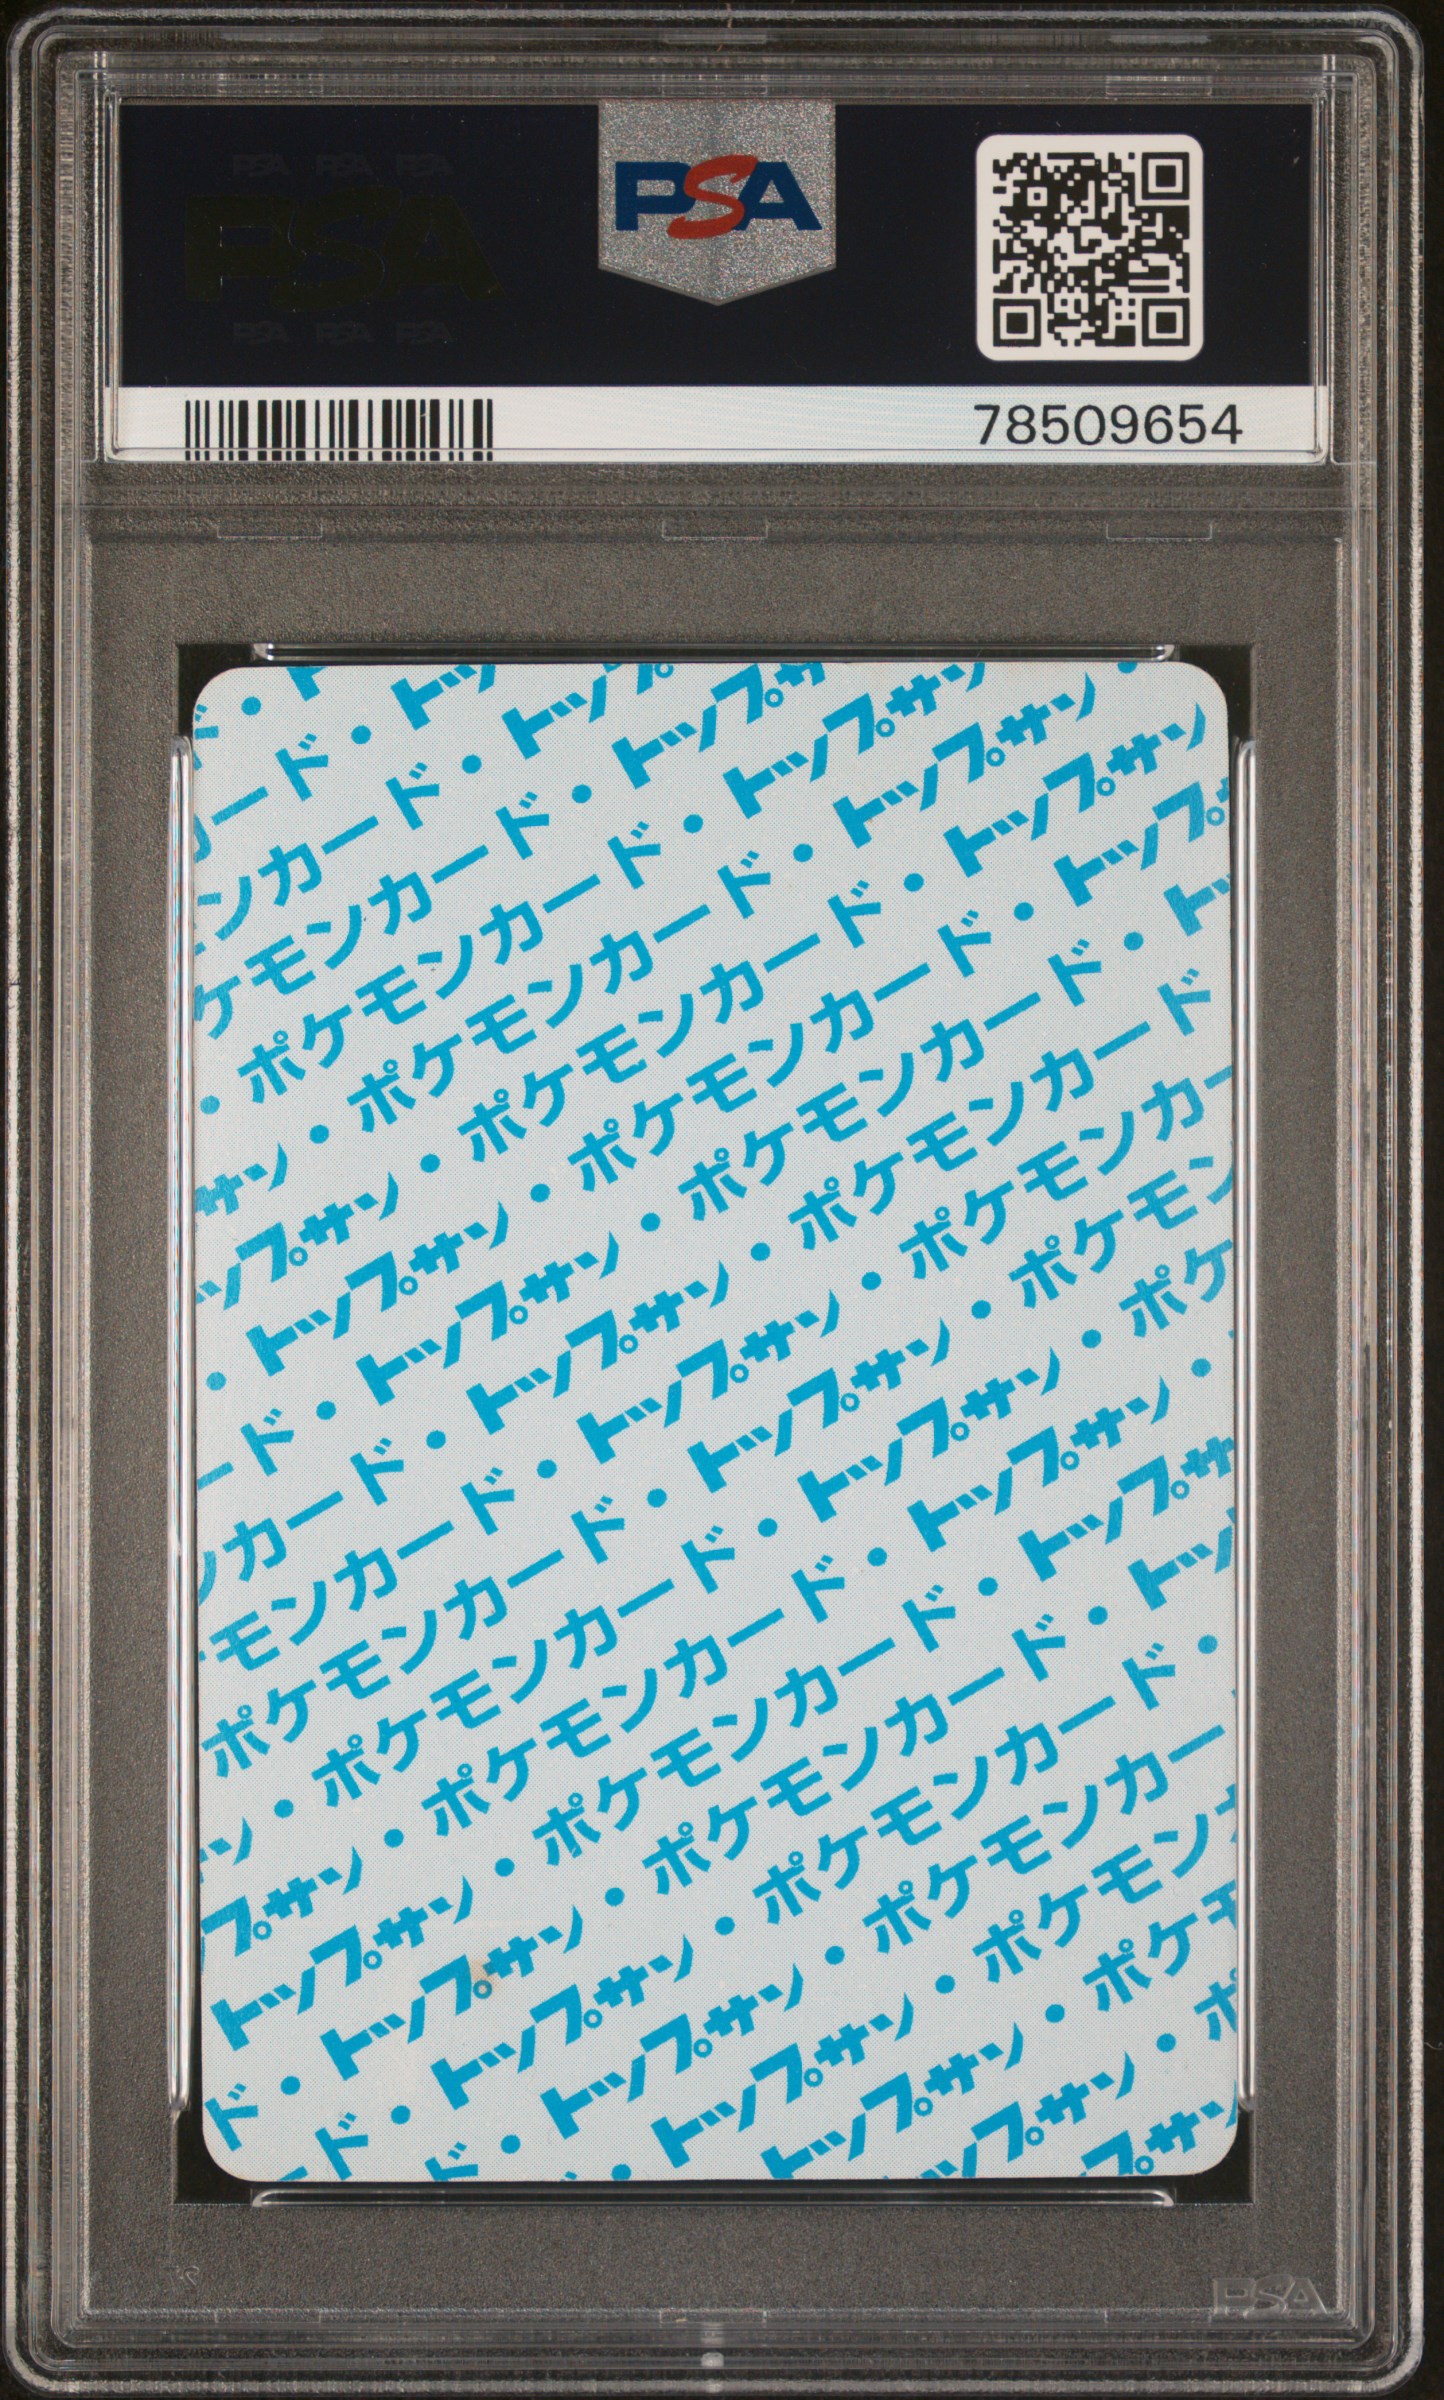 PSA PSA PSA
PSA
PSA PSA PSA
PSA
78509654
ド・ト
カード・トッ
ンカード・トップ
ケモンカード・トップサ
・ポケモンカード・トップサン
サン・ポケモンカード・トップサン・
ップサン・ポケモンカード・トップサン
・トップサン・ポケモンカード・トップ
ード・トップサン・ポケモンカード・トッ
ンカード・トップサン・ポケモンカード
モンカード・トップサン・ポケモンカー
ポケモンカード・トップサン・ポケモン
ン・ポケモンカード・トップサン・ポケ
プサン・ポケモンカード・トップサン・
トップサン・ポケモンカード・トップサ
ド・トップサン・ポケモンカード・トッ
ド・トップサン・ポケモンカード・
ド・トップサン・ポケモンカー
・トップサン・ポケモン
トップサン・ポケモ
ップサン・ポ
プサン
PSA